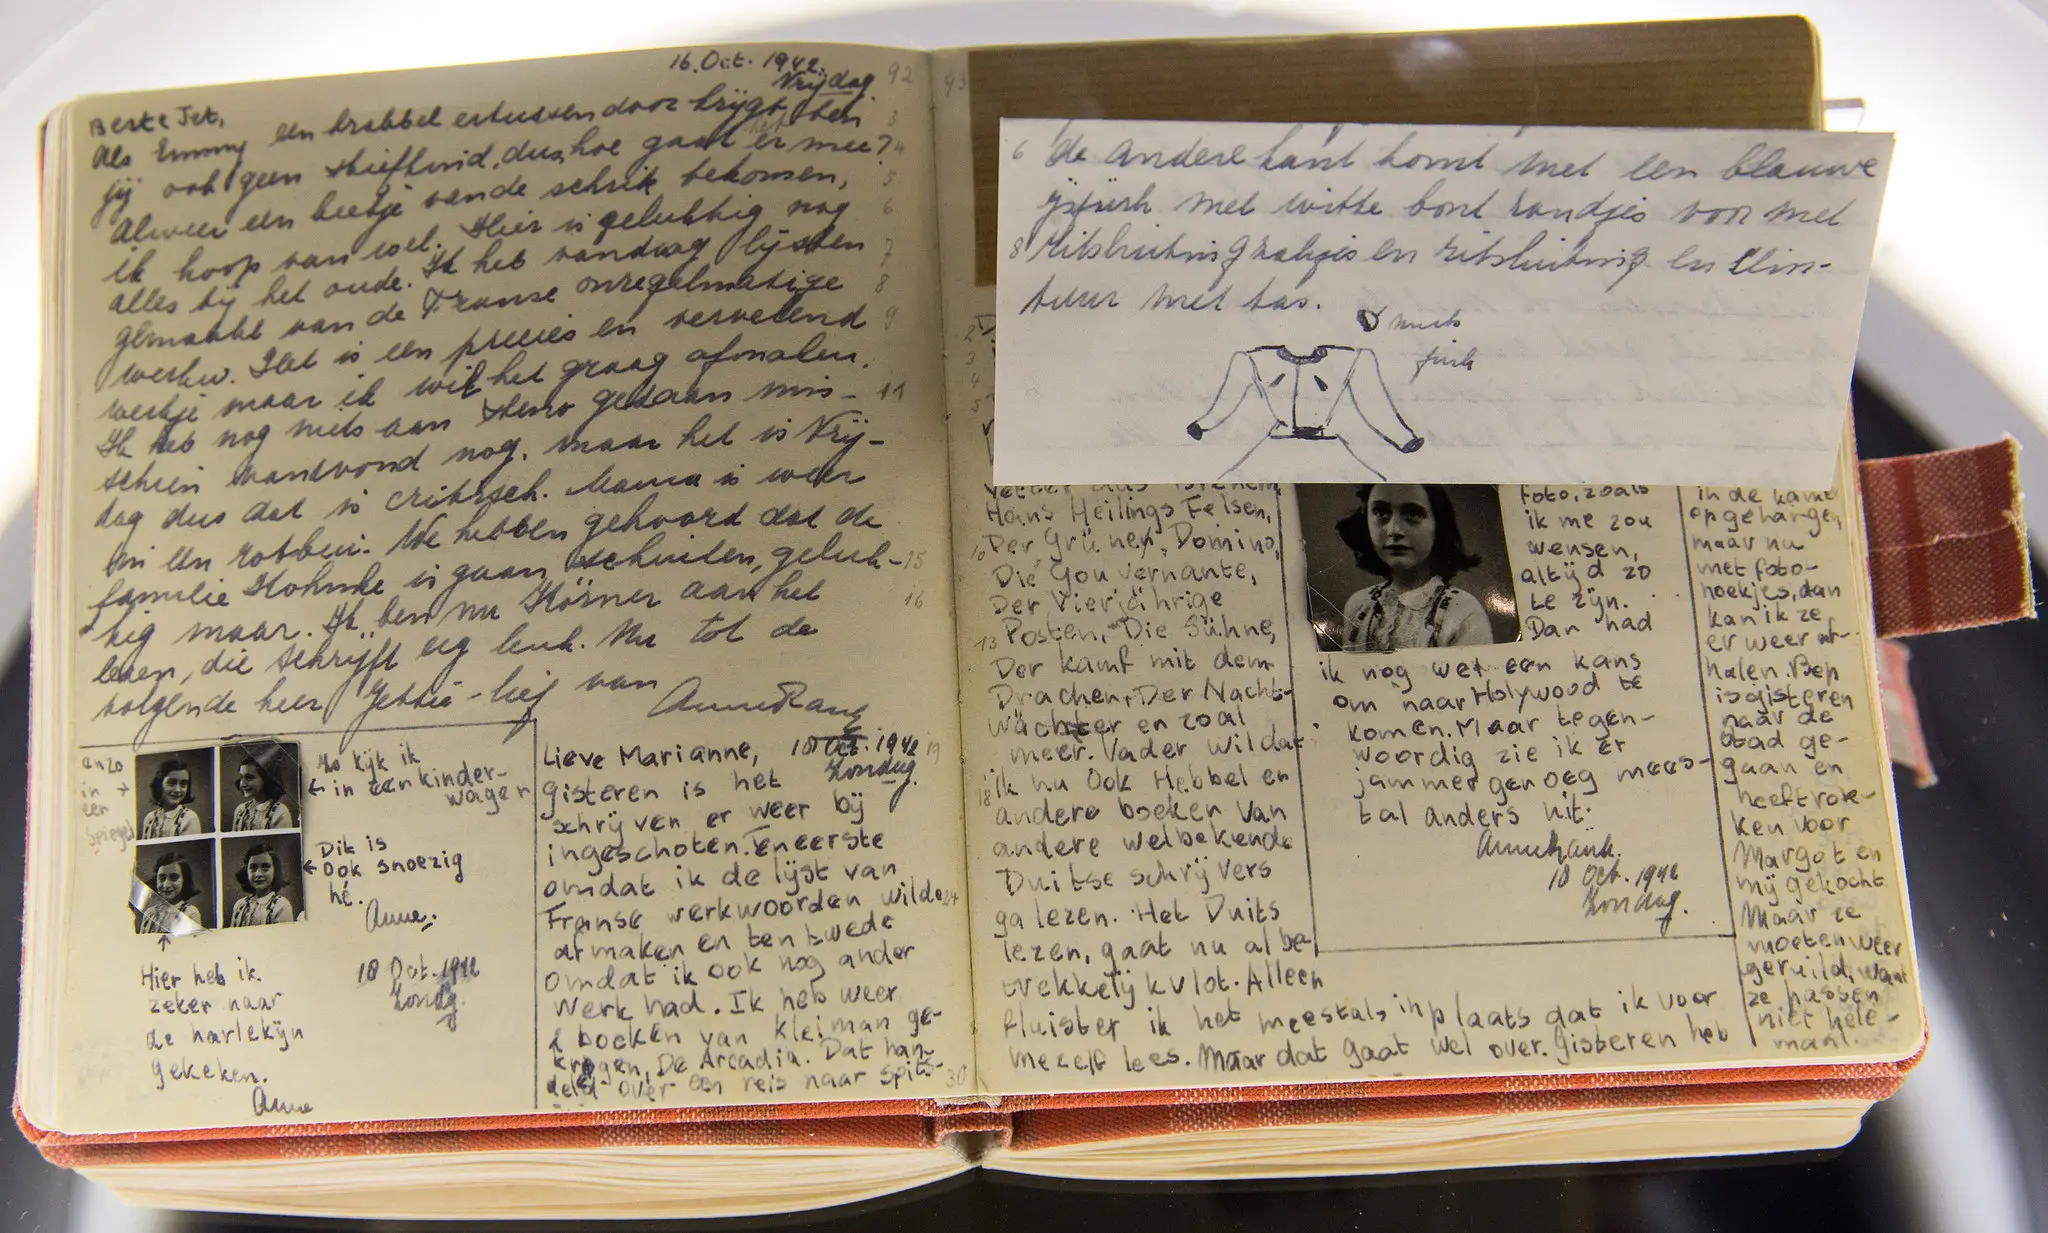 16. Oct. 1942.
Vrijdag
92
Beste Jet,
Als Emmy een krabbel ertussen door krijgt, ben
3
jij ook geen stiefkind, dus, hoe gaat het er mee?
4
Alweer een beetje van de schrik bekomen,
5
ik hoop van wel. Hier is gelukkig nog
6
alles bij het oude. Ik heb vandaag lijsten
7
gemaakt van de Franse onregelmatige
8
werkw. Het is een precies en vervelend
9
werkje maar ik wil het graag afmaken.
Ik heb nog niets aan steno gedaan mis-
11
schien vanavond nog. maar het is Vrij-
dag dus dat is critisch. Mama is weer
in een rotbui. We hebben gehoord dat de
familie Kohnke is gaan schuilen, geluk-
15
kig maar. Ik ben nu Körner aan het
16
lezen, die schrijft erg leuk. Nu tot de
volgende keer Jettie-lief van
Anne Frank
enzo
in →
een
spiegel
Zo kijk ik
← in een kinder-
wagen
Dit is
← ook snoezig
hé.
Anne.
↑
Hier heb ik
zeker naar
de harlekijn
gekeken.
Anne
18 Oct. 1942
Zondg.
Lieve Marianne,
18 Oct. 1942
19
Zondag.
gisteren is het
schrijven er weer bij
ingeschoten. Teneerste
omdat ik de lijst van
Franse werkwoorden wilde
24
afmaken en ten twede
omdat ik ook nog ander
werk had. Ik heb weer
2 boeken van Kleiman ge-
kregen, De Arcadia. Dat han-
deld over een reis naar Spits-
30
93
6 de andere kant komt met een blauwe
ijsjurk met witte bont randjes voor met
8 ritssluiting zakjes en ritssluiting en
tuur met tas.
muts
jurk
2
3
4
5
Hans Heilings Felsen,
10 Der Grünen Domino,
Die Gouvernante,
Der Vierjährige
13 Posten, Die Sühne,
Der kamf mit dem
Drachen, Der Nacht-
wächter en zoal
meer. Vader wil dat
18 ik nu ook Hebbel en
andere boeken van
andere welbekende
Duitse schrijvers
ga lezen. Het Duits
lezen, gaat nu al be-
trekkelijk vlot. Alleen
fluister ik het meestal, inplaats dat ik voor
mezelf lees. Maar dat gaat wel over. Gisteren heb
foto, zoals
ik me zou
wensen,
altijd zo
te zijn.
Dan had
ik nog wel een kans
om naar Holywood te
komen. Maar tegen-
woordig zie ik er
jammer genoeg mees-
tal anders uit.
Anne Frank.
18 Oct. 1942
Zondag.
in de kame
opgehangen,
maar nu
met foto-
hoekjes, dan
kan ik ze
er weer af-
halen. Bep
is gisteren
naar de
stad ge-
gaan en
heeft rok-
ken voor
Margot en
mij gekocht.
Maar ze
moeten weer
geruild, want
ze passen
niet hele-
maal.